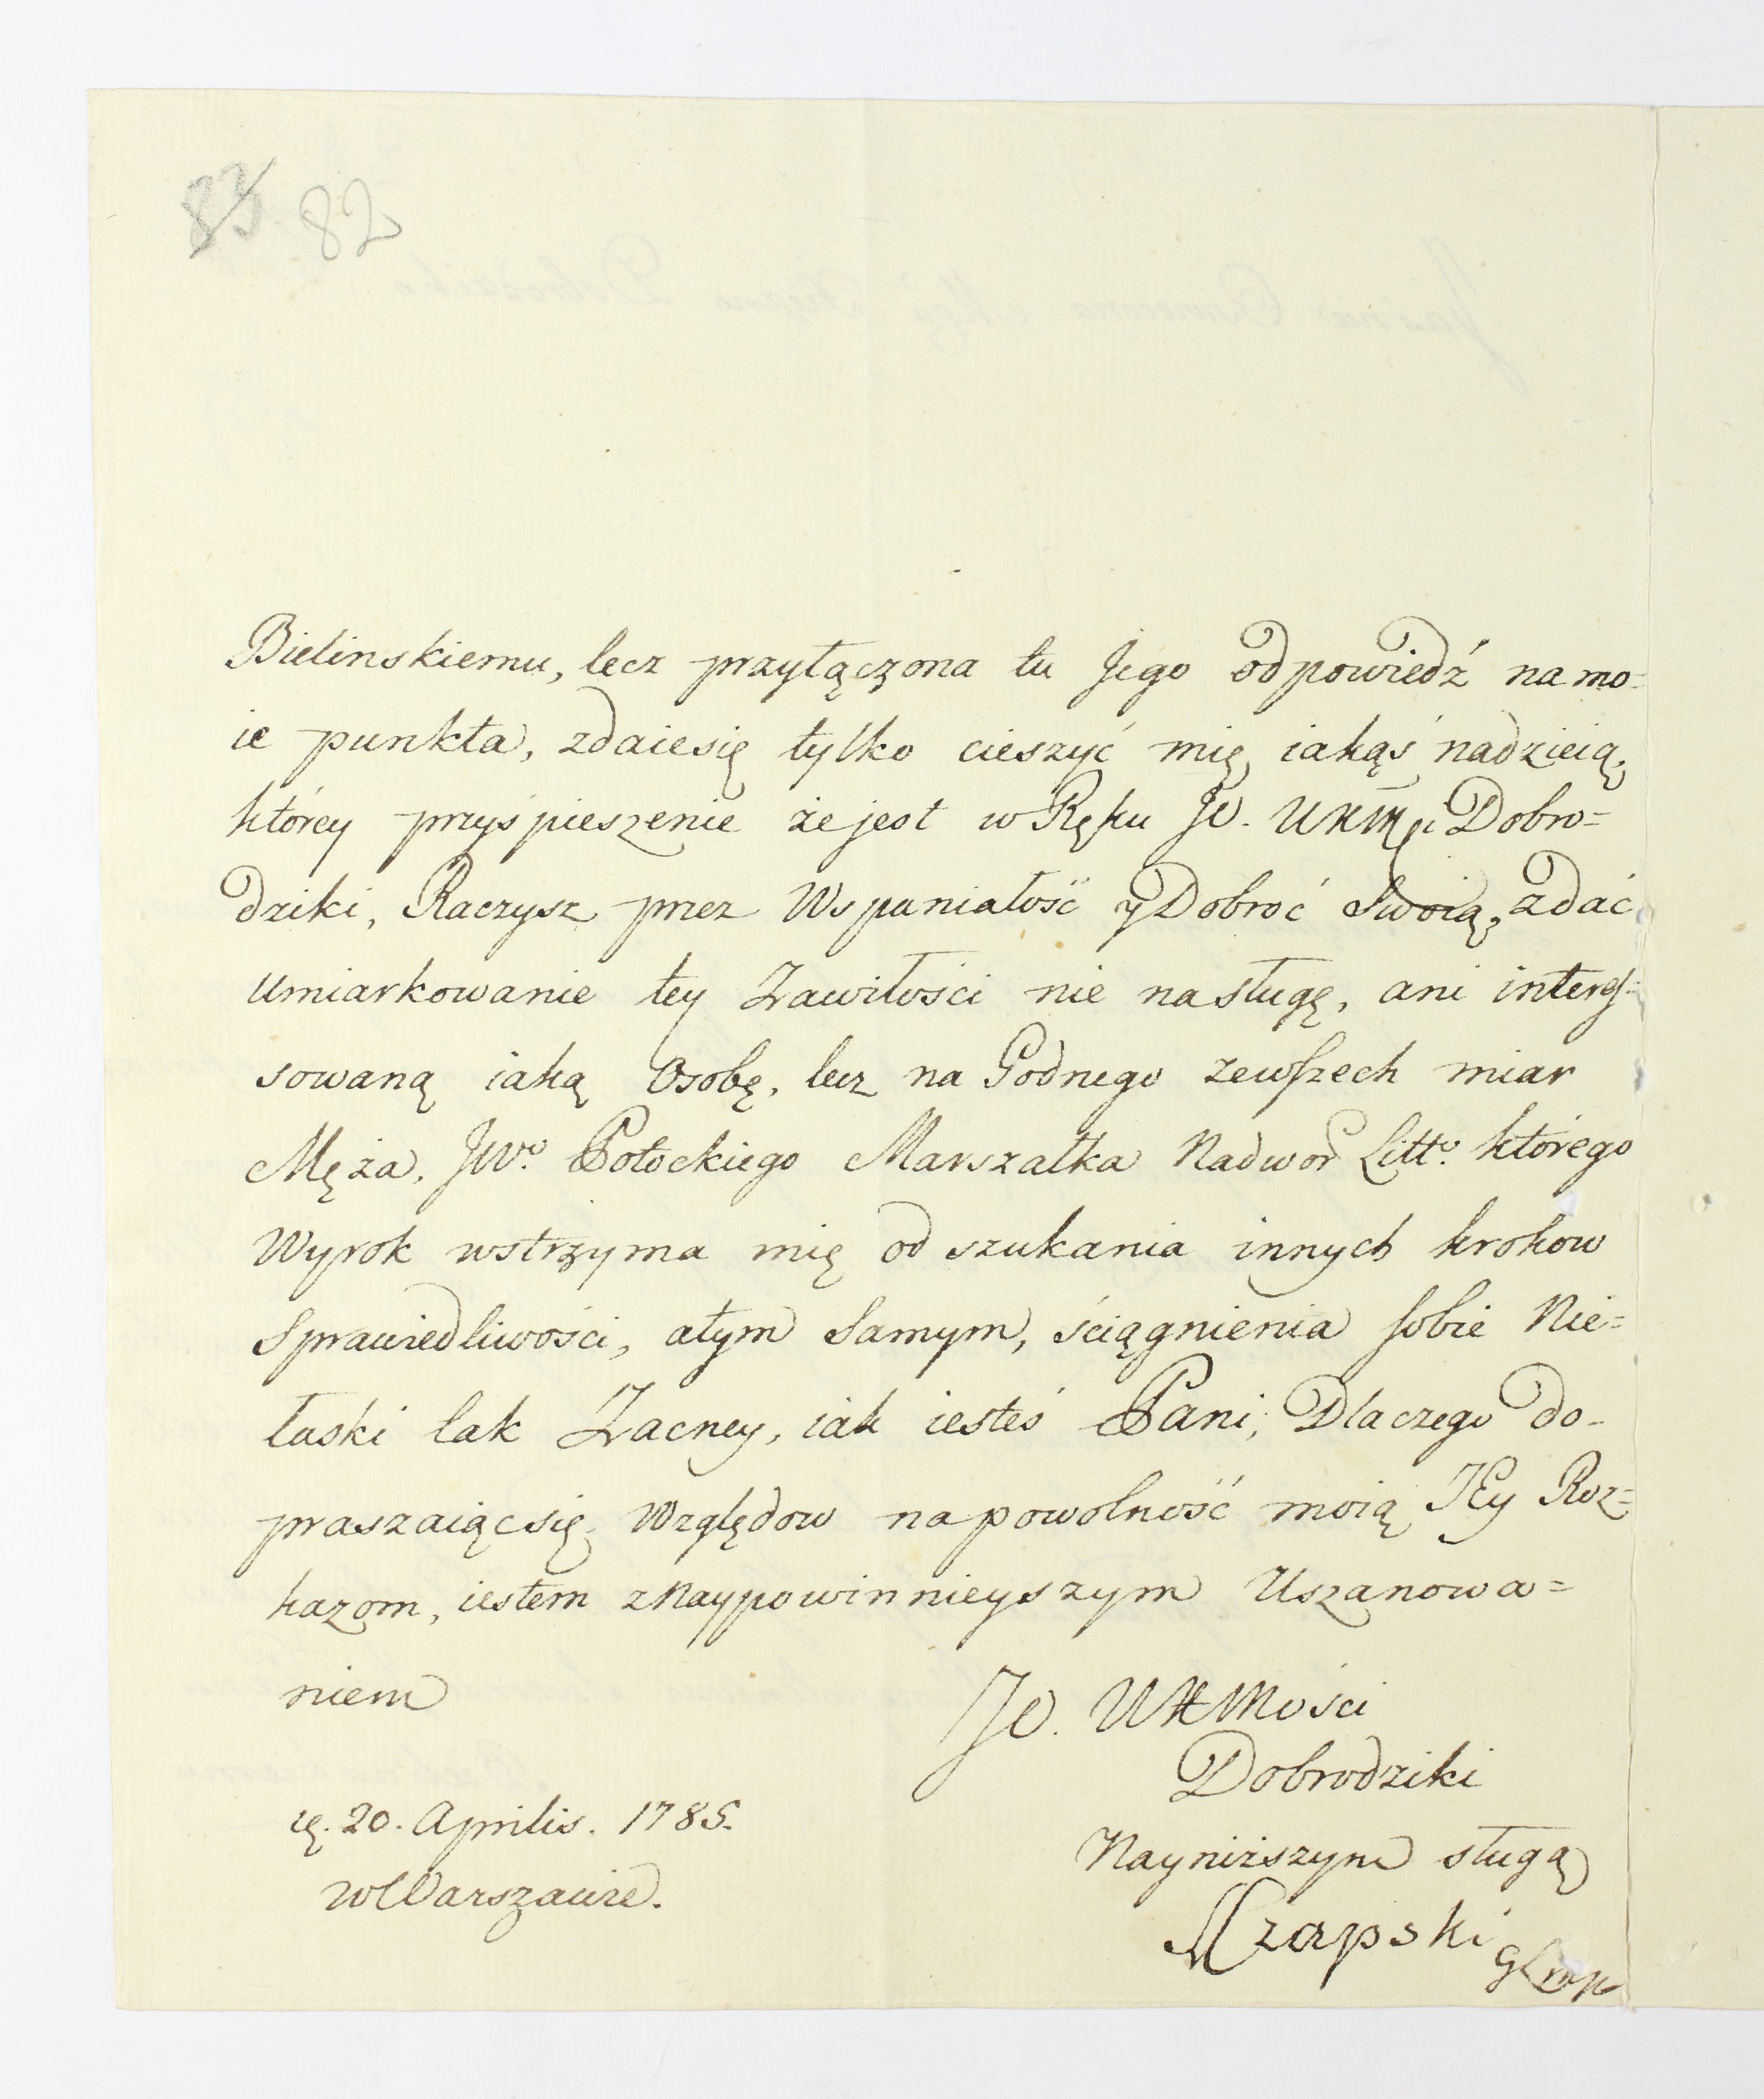 83 82
Bielinskiemu, lecz przyłączona tu Jego odpowiedź na mo=
ie punkta, zdaiesię tylko cieszyć mię iakąś nadzieią,
którey przyśpieszenie że jest w Ręku JO. WKMći Dobro=
dziki, Raczysz przez Wspaniałość y Dobroć Swoią, zdać
umiarkowanie tey Zawiłości nie nasługę, ani interes=
sowaną iaką Osobę, lecz na Godnego zewszech miar
Męża, JWo. Potockiego Marszałka Nadwor Litto. którego
Wyrok wstrzyma mię od szukania innych krokow
Sprawiedliwości, atym samym, ściągnienia sobie Nie=
łaski tak Zacney, iak iesteś Pani, Dlaczego do-
praszaiąc się, Względow na powolność moią JEy Roz=
kazom, iestem z Naypowinnieyszym Uszanowa=
niem
JO. WKMości
Dobrodziki
Nayniższym sługą
Czapski
20. Aprilis. 1785.
w Warszawie.